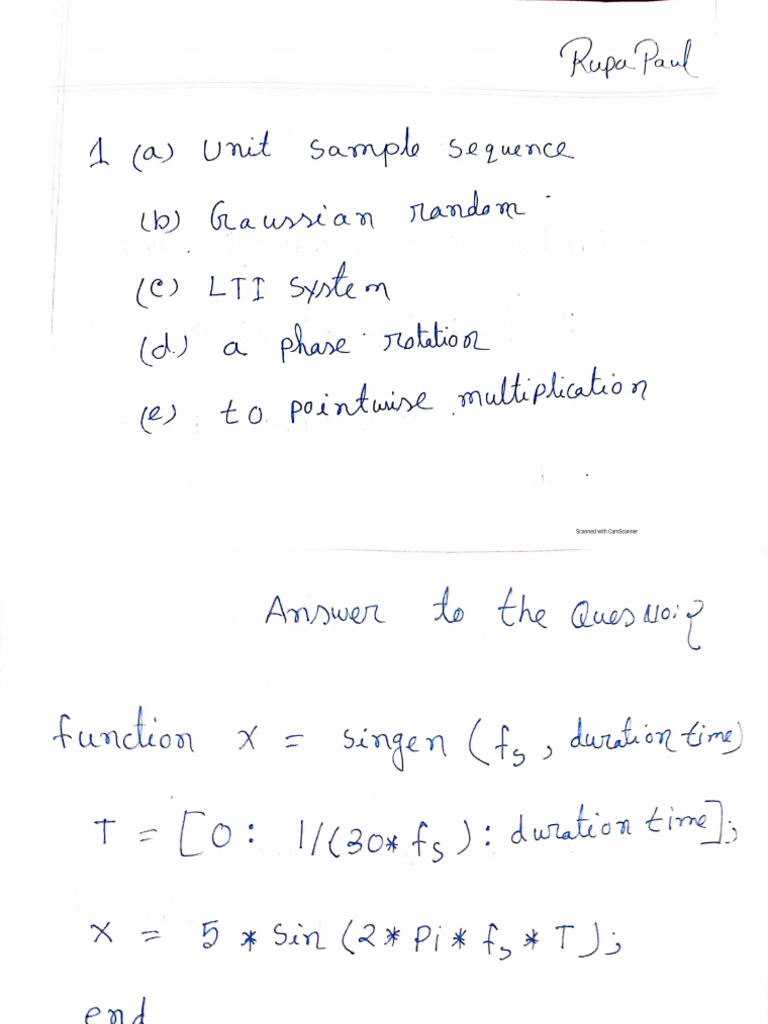 Rupa Paul
1 (a) Unit sample sequence
(b) Gaussian random
(c) LTI system
(d) a phase rotation
(e) to pointwise multiplication
Scanned with CamScanner
Answer to the Ques No: 2
function x = singen (fs, duration time)
T = [0: 1/(30* fs): duration time];
x = 5 * sin (2* Pi * fs * T);
end